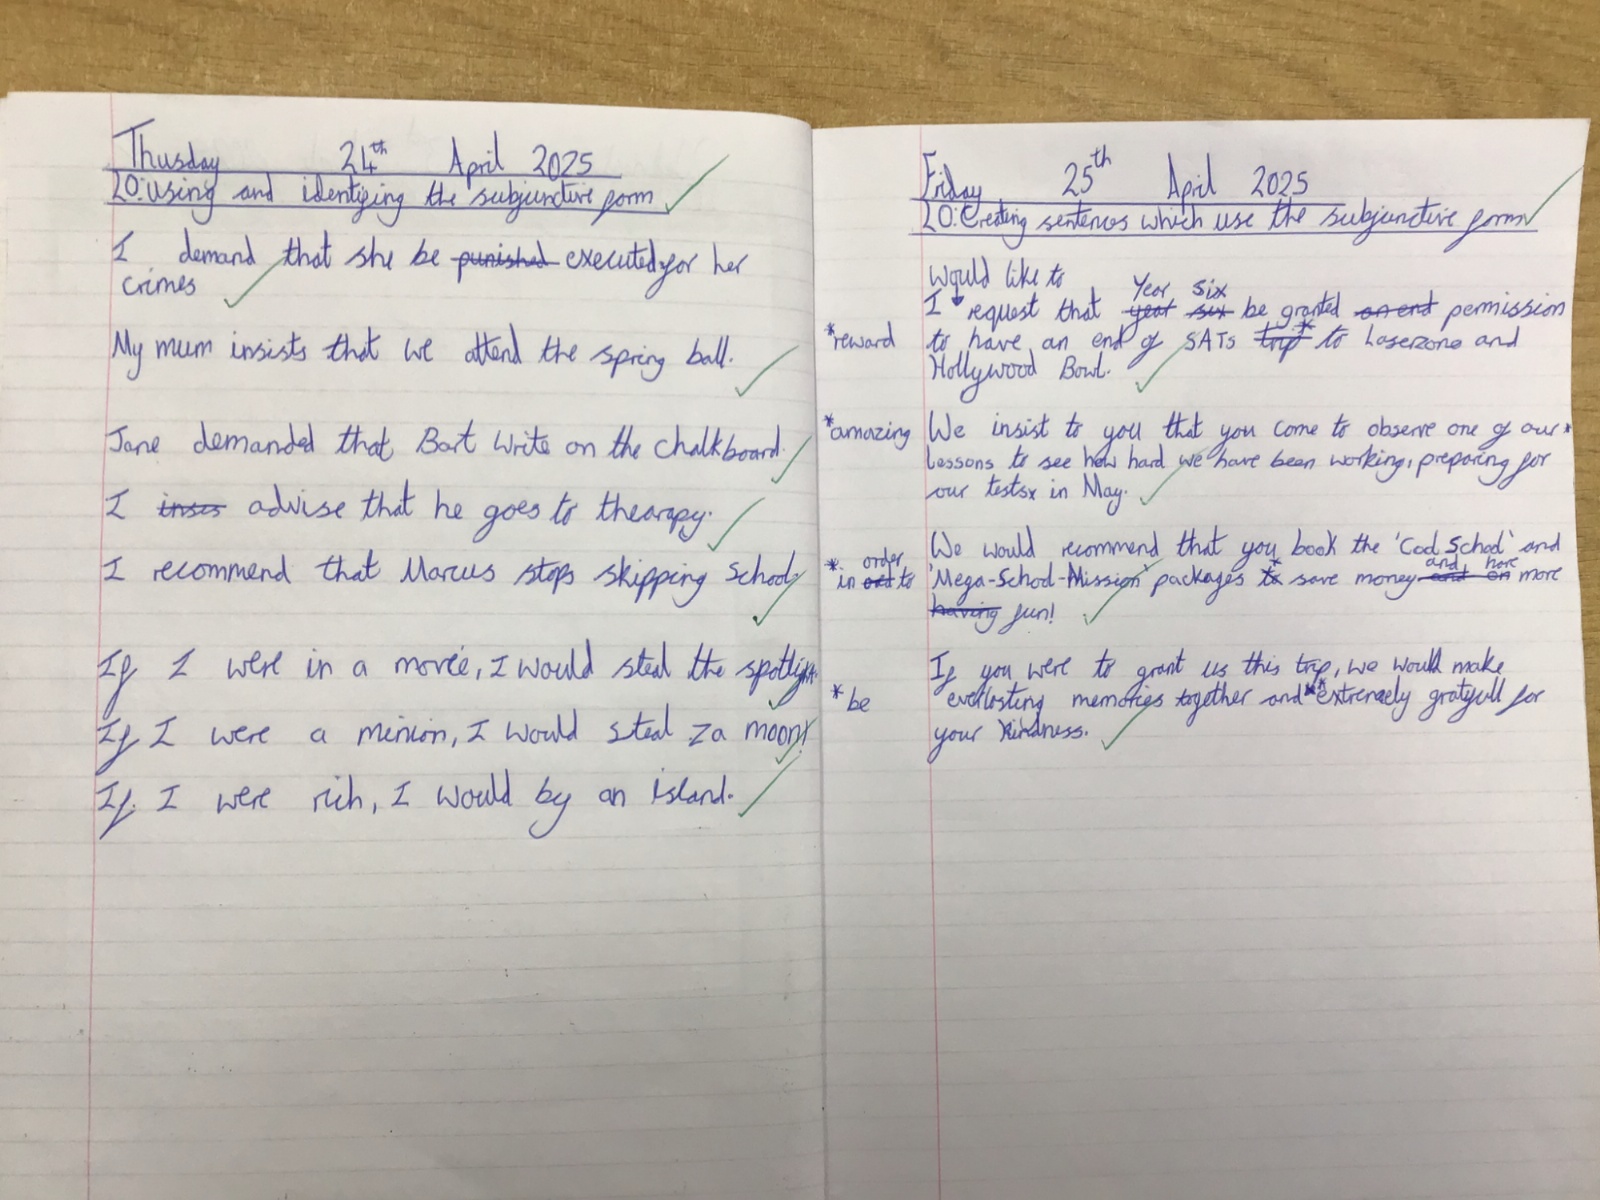 Thusday 24th April 2025
LO: Using and identifying the subjunctive form
I demand that she be punished executed for her
crimes
My mum insists that we attend the spring ball.
Jane demanded that Bart write on the chalkboard.
I insis advise that he goes to thearapy.
I recommend that Marcus stops skipping school
If I were in a movie, I would steal the spotlight.
If I were a minion, I would steal za moon!
If I were rich, I would by an island.
Friday 25th April 2025
LO: Creating sentences which use the subjunctive form
would like to
Year six
I request that year six be granted an end permission
*reward to have an end of SATs trip* to Laserzone and
Hollywood Bowl.
*amazing We insist to you that you come to observe one of our*
lessons to see how hard we have been working, preparing for
our tests in May.
We would recommend that you book the 'Cool School' and
* order and have
in to 'Mega-School-Mission' packages to* save money and on more
having fun!
If you were to grant us this trip, we would make
*be everlasting memories together and* extremely gratefull for
your kindness.